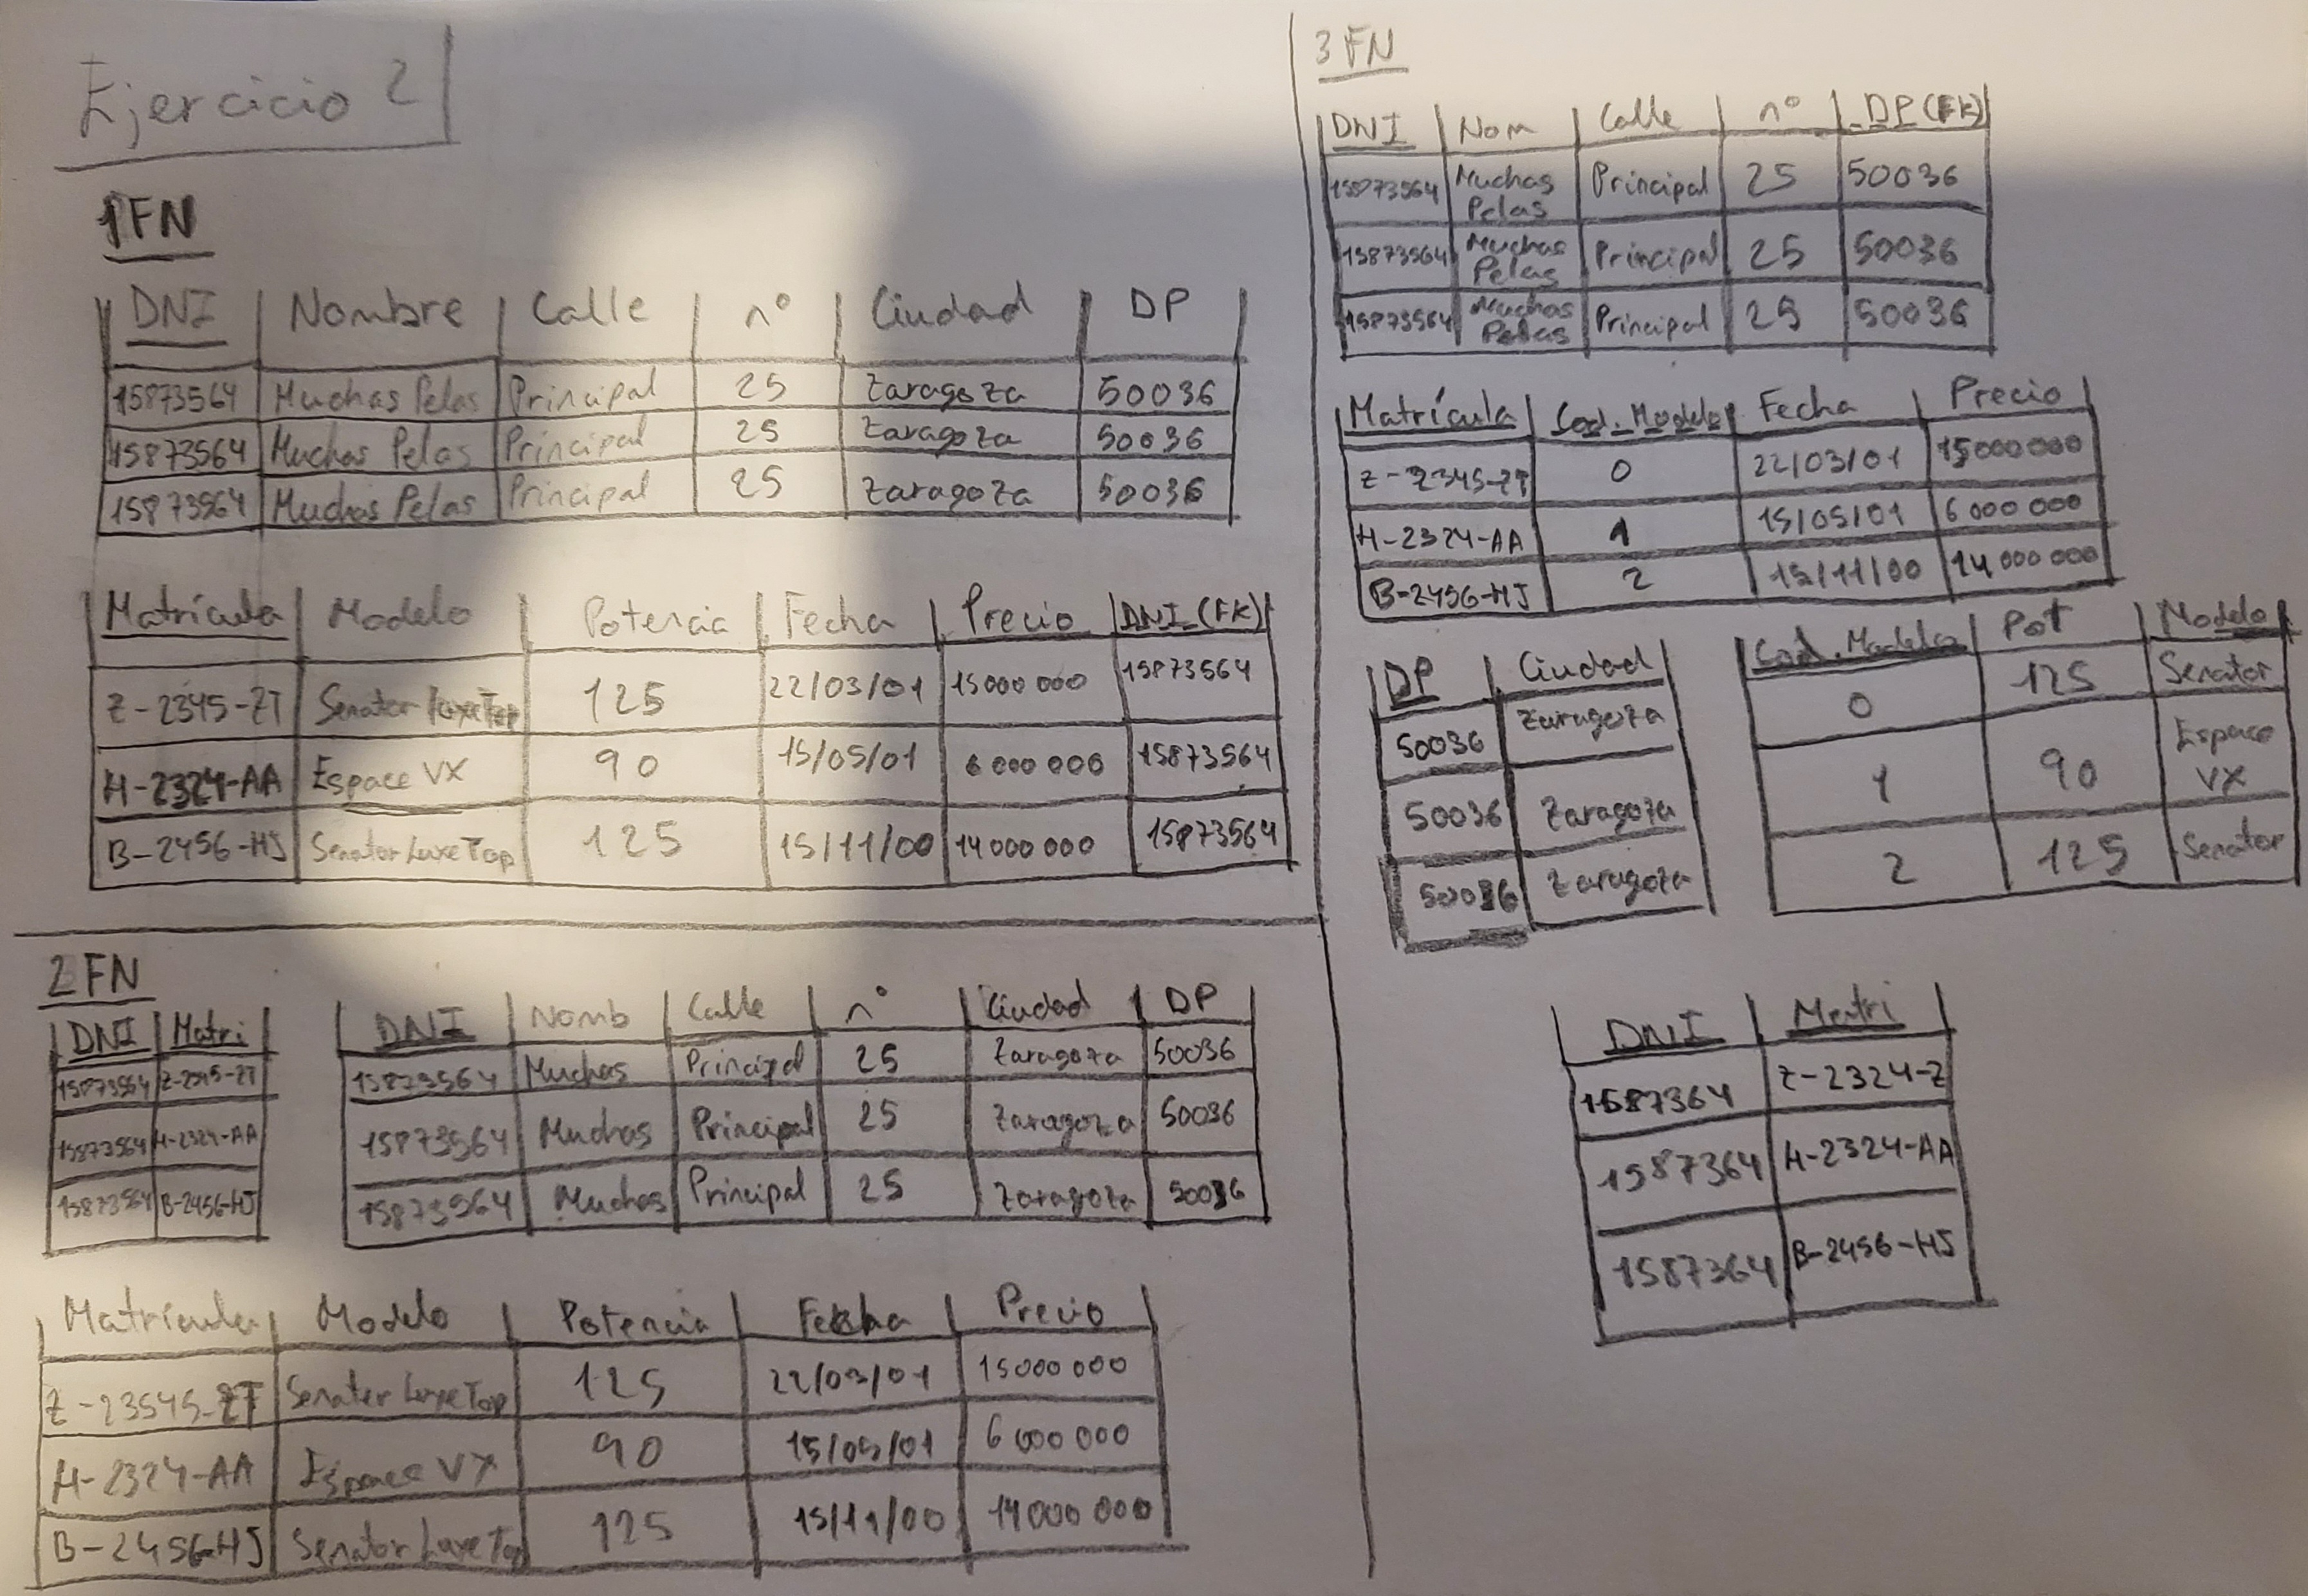 Ejercicio 2
1FN
DNI Nombre Calle nº Ciudad DP
15873564 Muchas Pelas Principal 25 Zaragoza 50036
15873564 Muchas Pelas Principal 25 Zaragoza 50036
15873564 Muchas Pelas Principal 25 Zaragoza 50036
Matrícula Modelo Potencia Fecha Precio DNI (FK)
Z-2345-ZT Senator LuxeTop 125 22/03/01 15000 000 15873564
H-2324-AA Espace VX 90 15/05/01 6 000 000 15873564
B-2456-HJ Senator Luxe Top 125 15/11/00 14 000 000 15873564
2 FN
DNI Matri
15873564 Z-2345-ZT
15873564 H-2324-AA
15873564 B-2456-HJ
DNI Nomb Calle nº Ciudad DP
15873564 Muchas Principal 25 Zaragoza 50036
15873564 Muchas Principal 25 Zaragoza 50036
15873564 Muchas Principal 25 Zaragoza 50036
Matrícula Modelo Potencia Fecha Precio
Z-23545-ZT Senator Luxe Top 125 22/03/01 15000 000
H-2324-AA Espace VX 90 15/05/01 6 000 000
B-2456-HJ Senator Luxe Top 125 15/11/00 14000 000
3 FN
DNI Nom Calle nº DP (FK)
15873564 Muchas Pelas Principal 25 50036
15873564 Muchas Pelas Principal 25 50036
15873564 Muchas Pelas Principal 25 50036
Matrícula Cod. Modelo Fecha Precio
Z-2345-ZT 0 22/03/01 15000 000
H-2324-AA 1 15/05/01 6 000 000
B-2456-HJ 2 15/11/00 14 000 000
DP Ciudad
50036 Zaragoza
50036 Zaragoza
50036 Zaragoza
Cod. Modelo Pot Modelo
0 125 Senator
1 90 Espace VX
2 125 Senator
DNI Matri
1587364 Z-2324-Z
1587364 H-2324-AA
1587364 B-2456-HJ